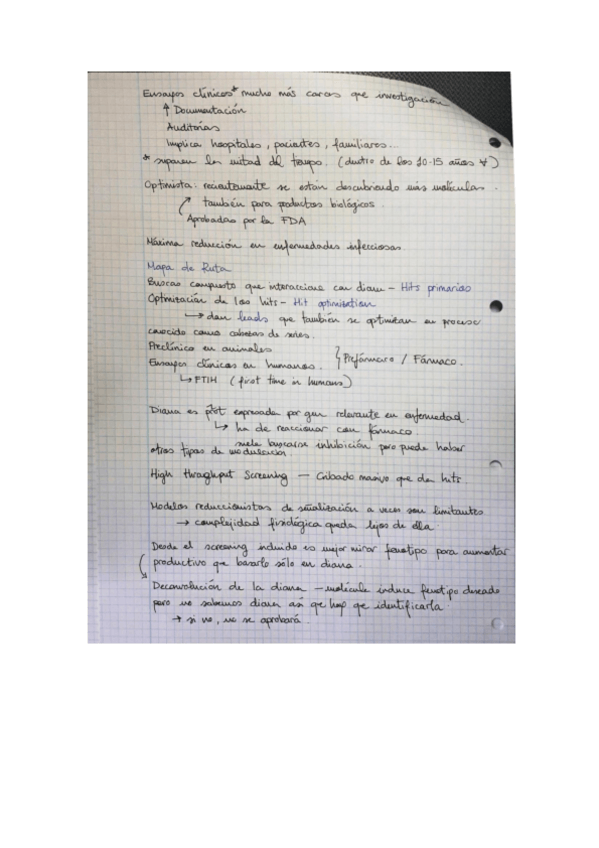 Ensayos clínicos* mucho más caros que investigación
↑ Documentación
Auditorías
Implica hospitales, pacientes, familiares...
* suponen la mitad del tiempo. (dentro de los 10-15 años)
Optimista: recientemente se están descubriendo más moléculas.
también para productos biológicos.
Aprobadas por la FDA
Máxima reducción en enfermedades infecciosas.
Mapa de Ruta
Buscas compuesto que interaccione con diana – Hits primarios
Optimización de los hits – Hit optimisation
→ dan leads que también se optimizan en proceso
conocido como cabezas de series.
Preclínico en animales
Ensayos clínicos en humanos. } Prefármaco / Fármaco.
↳ FTIH (first time in humans)
Diana es prot expresada por gen relevante en enfermedad.
↳ ha de reaccionar con fármaco.
suele buscarse inhibición pero puede haber
otros tipos de modulación.
High throughput Screening — Cribado masivo que da hits
Modelos reduccionistas de señalización a veces son limitantes
→ complejidad fisiológica queda lejos de ella.
Desde el screening incluido es mejor mirar fenotipo para aumentar
productivo que basarlo sólo en diana.
Deconvolución de la diana – molécula induce fenotipo deseado
pero no sabemos diana así que hay que identificarla.
→ si no, no se aprobará.